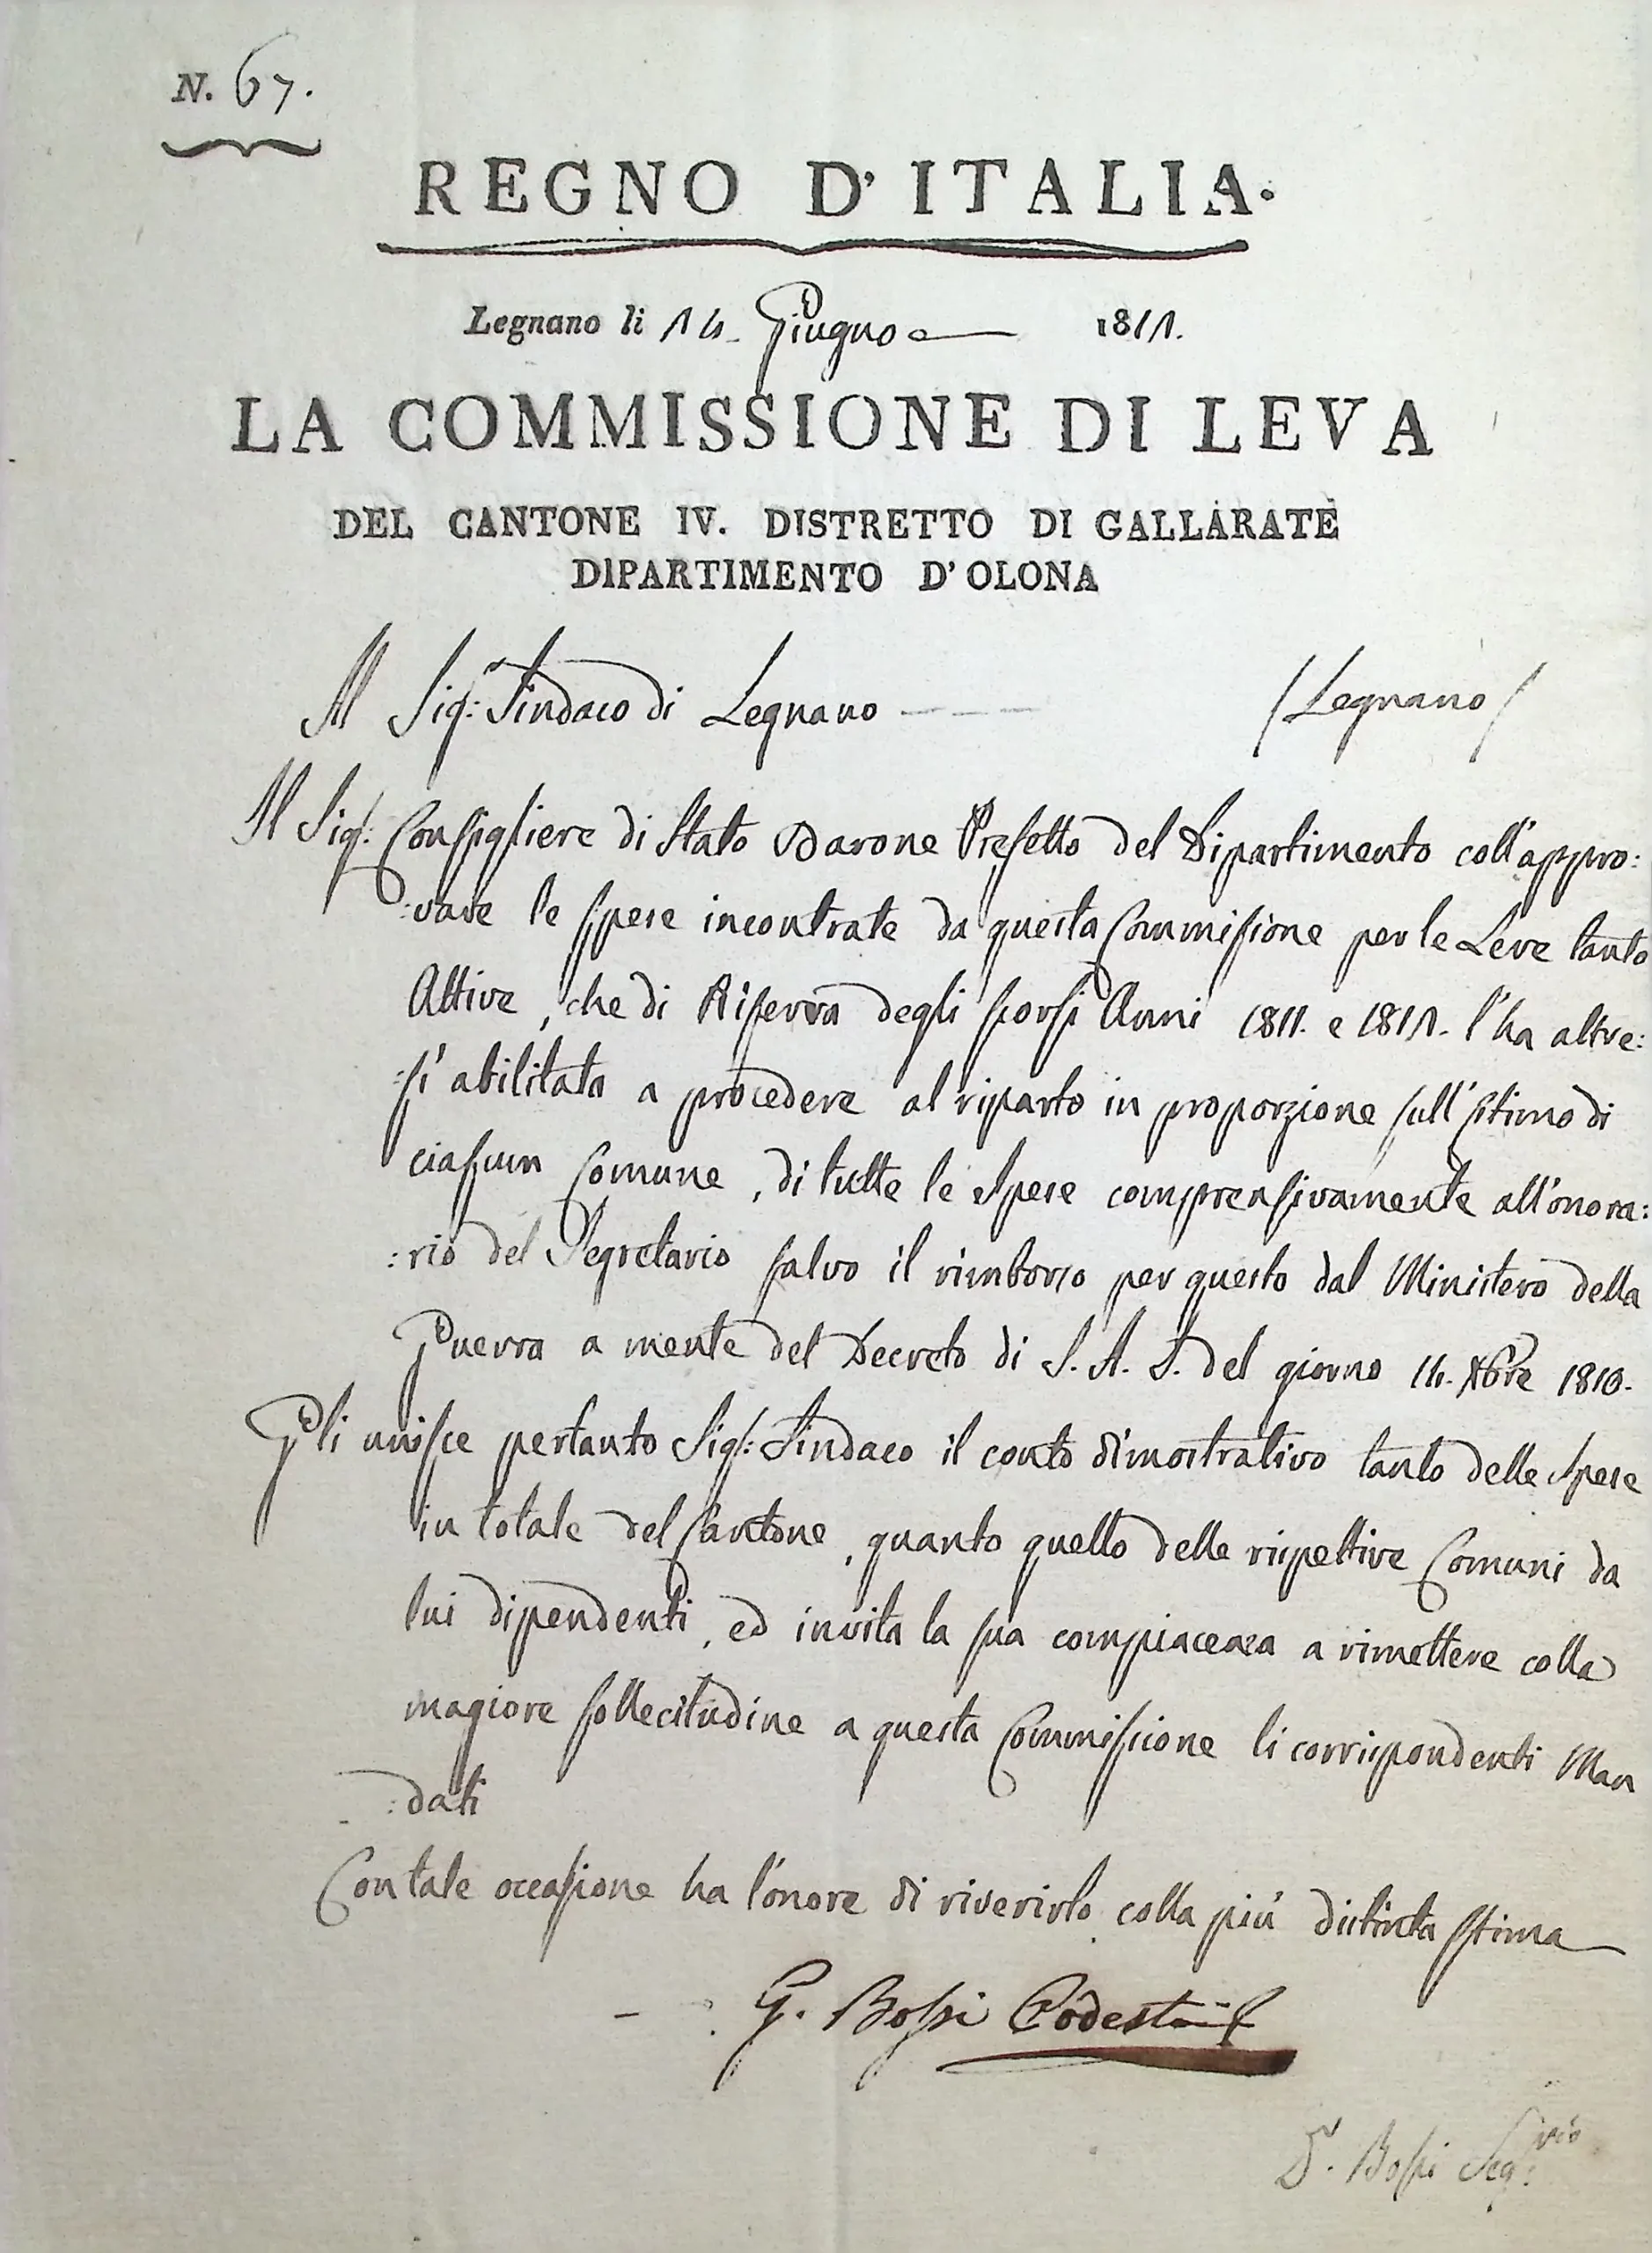 N. 67.
REGNO D'ITALIA.
Legnano li 14. Giugno 1811.
LA COMMISSIONE DI LEVA
DEL CANTONE IV. DISTRETTO DI GALLARATE
DIPARTIMENTO D'OLONA
Al Sig.: Sindaco di Legnano /Legnano/
Il Sig.: Consigliere di Stato Barone Prefetto del Dipartimento coll'appro:
:vare le spese incontrate da questa Commissione per le Leve tanto
Attive, che di Riserva degli scorsi Anni 1811. e 1811. l'ha altre:
:sì abilitata a procedere al riparto in proporzione sull'Estimo di
ciascun Comune, di tutte le Spese comprensivamente all'onora:
:rio del Segretario salvo il rimborso per questo dal Ministero della
Guerra a mente del Decreto di S. A. S. del giorno 14. Xbre 1810.
Gli unisce pertanto Sig.: Sindaco il conto dimostrativo tanto delle Spese
in totale del Cantone, quanto quello delle rispettive Comuni da
lui dipendenti, ed invita la sua compiacenza a rimettere colla
magiore sollecitudine a questa Commissione li corrispondenti Man
:dati
Con tale occasione ha l'onore di riverirlo colla più distinta stima
G. Bossi Podestà
D. Bossi Seg.rio